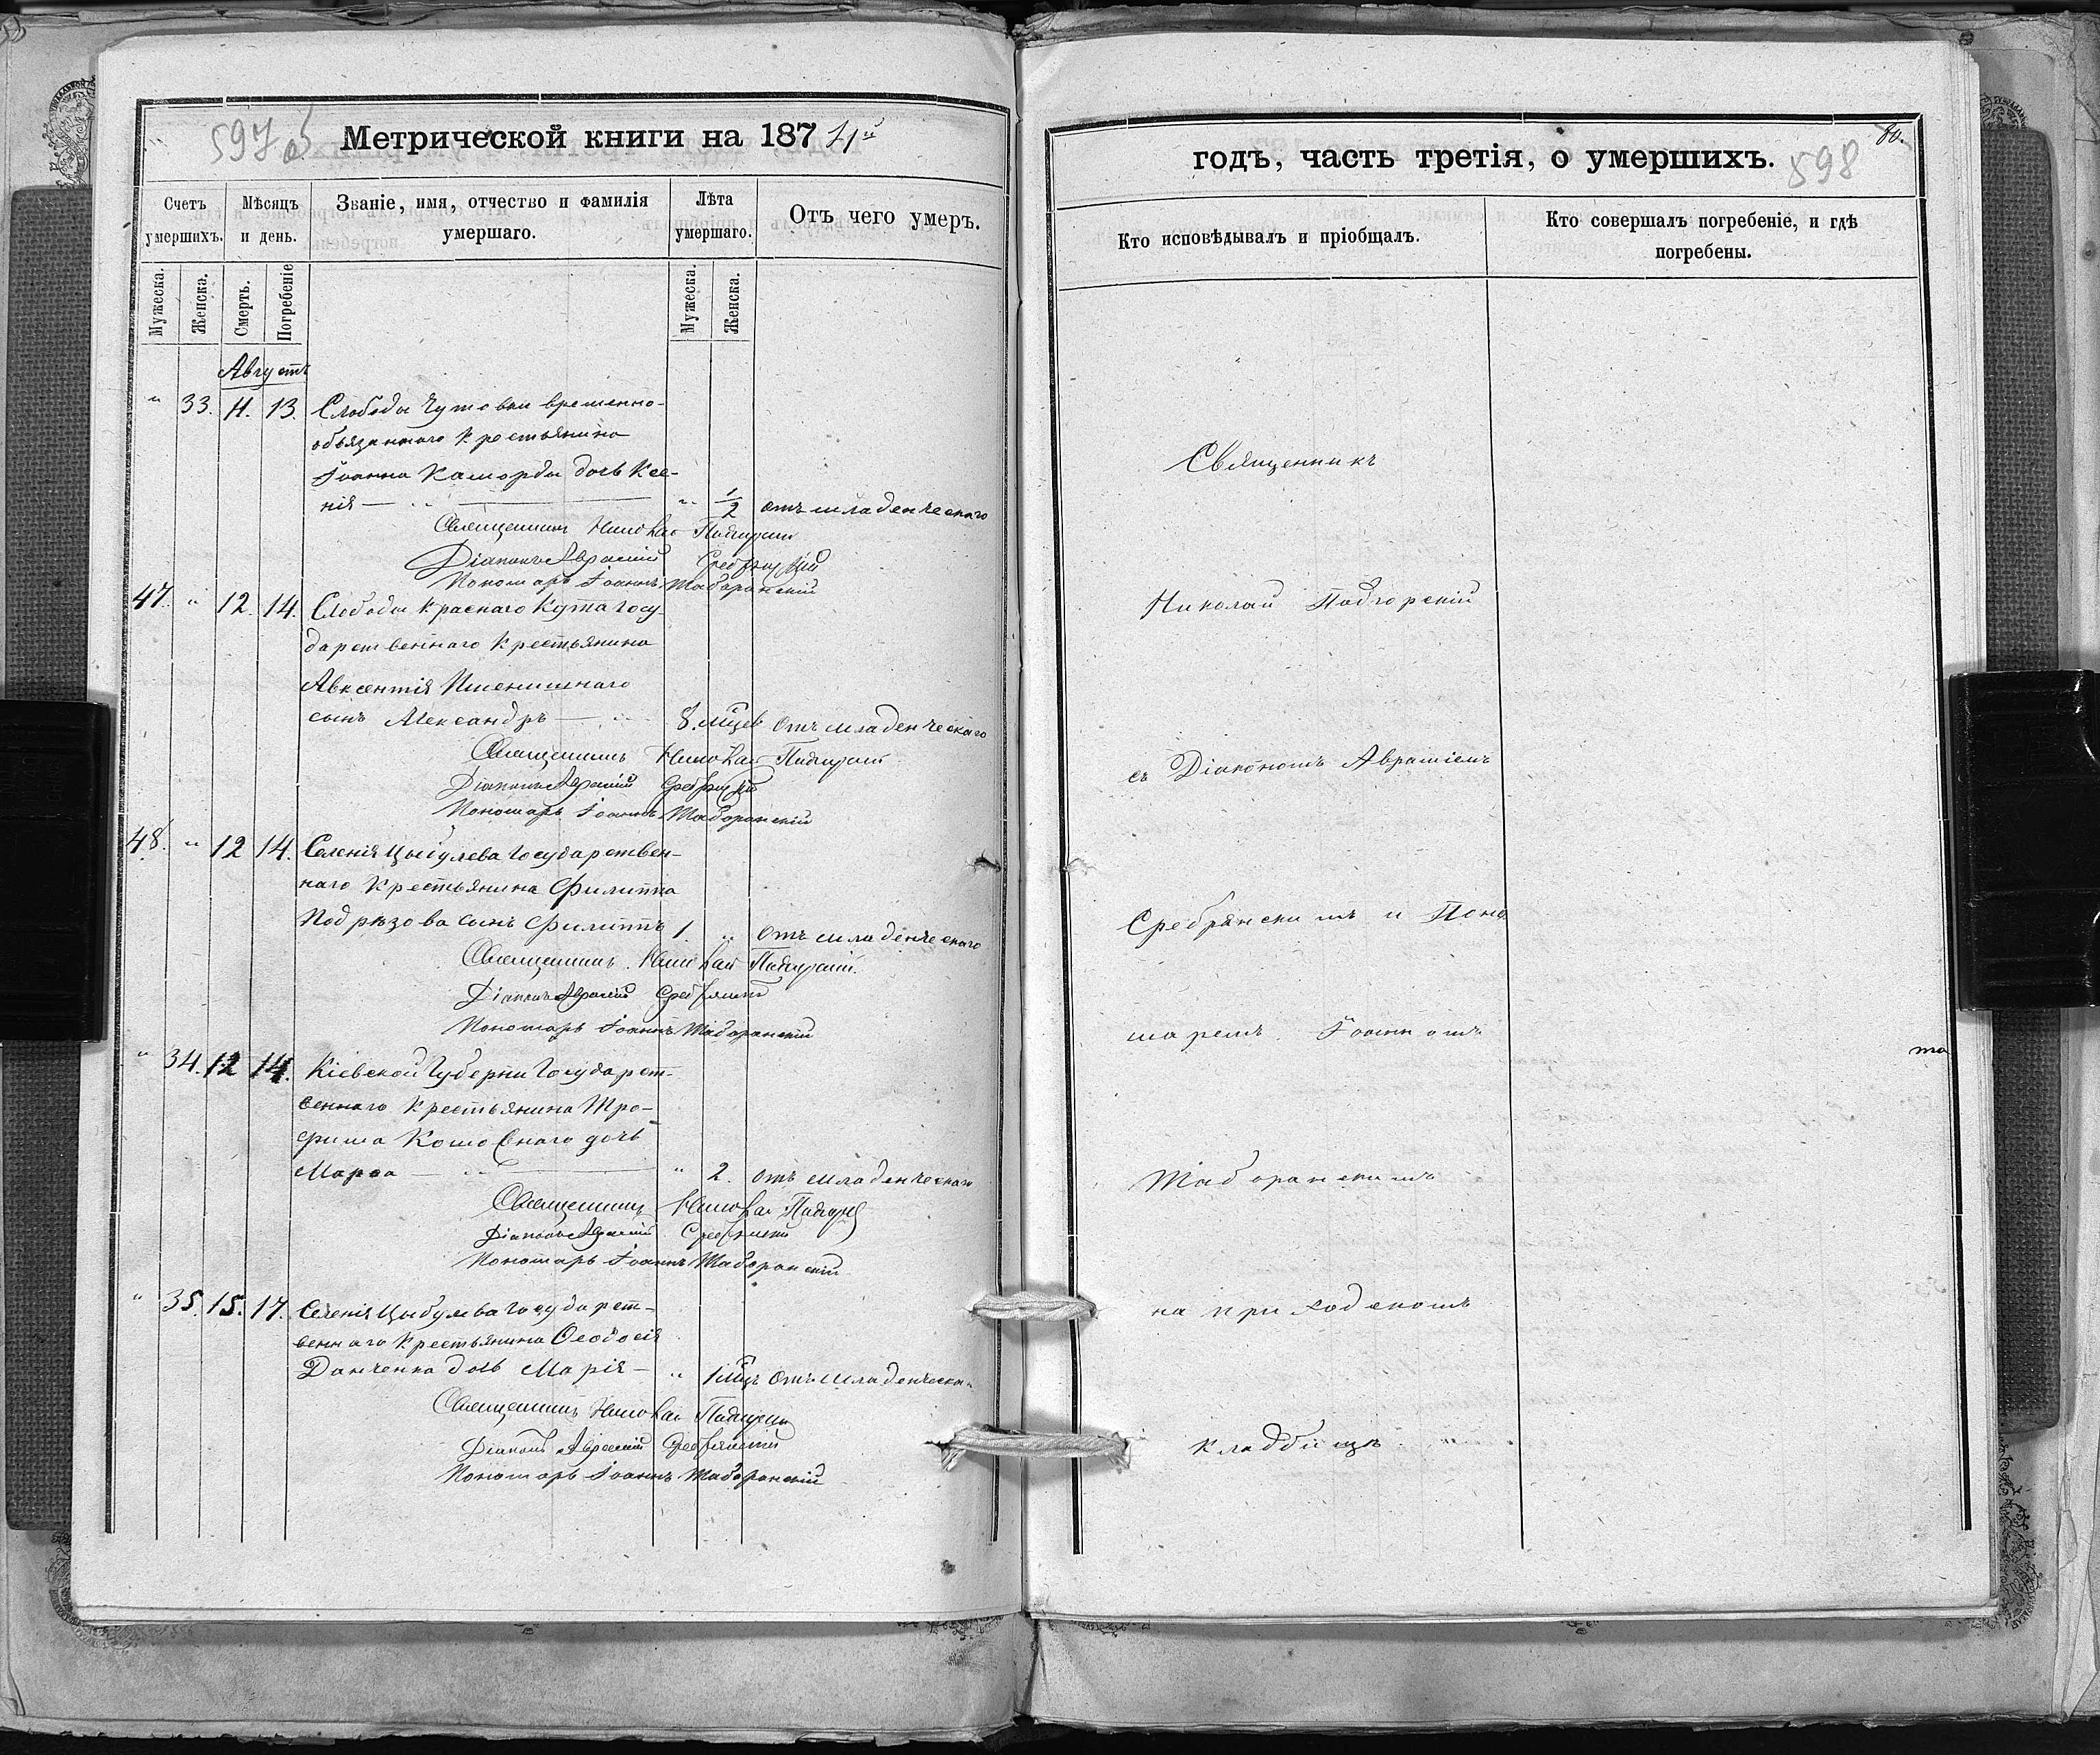 597 об
Метрической книги на 1874й
Счетъ умершихъ.
Мѣсяцъ и день.
Званіе, имя, отчество и фамилія умершаго.
Лѣта умершаго.
Отъ чего умеръ.
Мужеска.
Женска.
Смерть.
Погребеніе
Мужеска.
Женска.
Августъ
" 33. 11. 13. Слободы Чутовки временно-
обязаннаго крестьянина
Іоанна Каморды дочь Ксе-
нія — " 1/2 отъ младенческаго
Священникъ Николай Подгорскій
Діаконъ Аврамій Сребрянскій
Пономарь Іоаннъ Таборанскій
47. " 12. 14. Слободы Краснаго Кута Госу-
дарственнаго Крестьянина
Авксентія Пшеничнаго
сынъ Александръ — 8. мцев отъ младенческаго
Священникъ Николай Подгорскій
Діаконъ Аврамій Сребрянскій
Пономарь Іоаннъ Таборанскій
48. " 12 14. Селенія Цыбулева Государствен-
наго Крестьянина Филиппа
Подрѣзова сынъ Филиппъ 1. " Отъ младенческаго
Священникъ Николай Подгорскій.
Діаконъ Аврамій Сребрянскій
Пономарь Іоаннъ Таборанскій
" 34. 12 14. Кіевской Губерни Государст-
веннаго Крестьянина Тро-
фима дочь
Марѳа — " 2. отъ младенческаго
Священникъ Николай Подгорс
Діаконъ Аврамій Сребрянскій
Пономарь Іоаннъ Таборанскій
" 35. 15. 17. Селенія Цыбулева Государст-
веннаго Крестьянина Ѳеодосія
Данченка дочь Марія — " 1 мцъ Отъ младенческа
Священникъ Николай Подгорскій
Діаконъ Аврамій Сребрянскій
Пономарь Іоаннъ Таборанскій
годъ, часть третія, о умершихъ.
598
Кто исповѣдывалъ и пріобщалъ.
Кто совершалъ погребеніе, и гдѣ погребены.
Священникъ
Николай Подгорскій
съ Діакономъ Аврамiемъ
Сребрянскимъ и Поно
маремъ Іоанномъ
Таборанскимъ
на приходскомъ
кладбищѣ
та